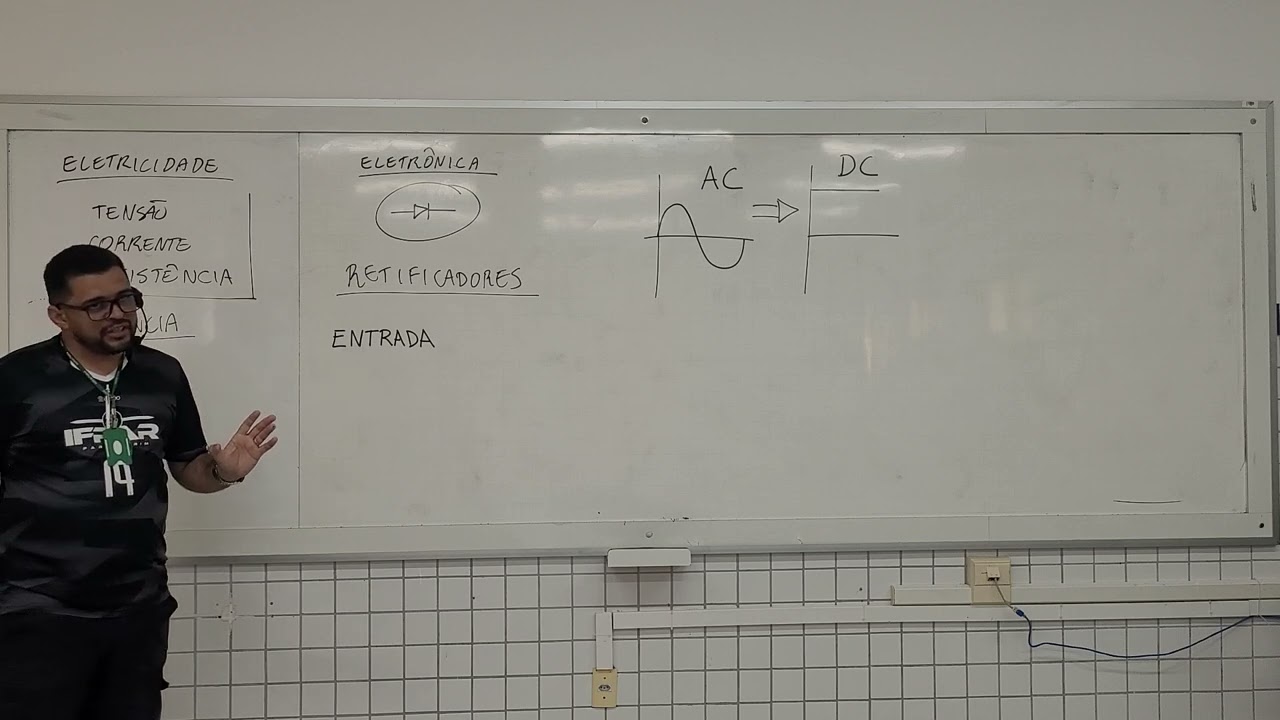 ELETRICIDADE
TENSÃO
CORRENTE
ELETRÔNICA
RETIFICADORES
ENTRADA
AC
DC
14